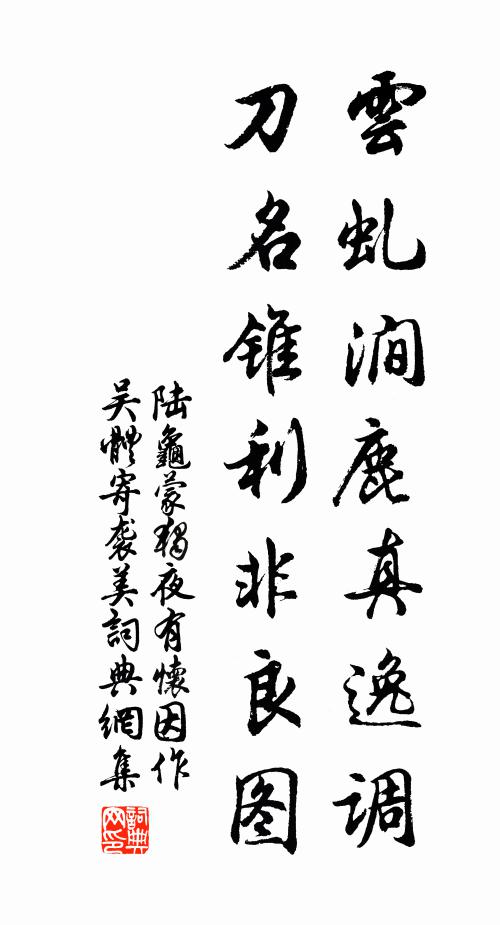 雲虬澗鹿真逸調
刀名錐利非良图
陆龜蒙獨夜有懷因作
吴體寄袭美詞典網集
詞典
网印